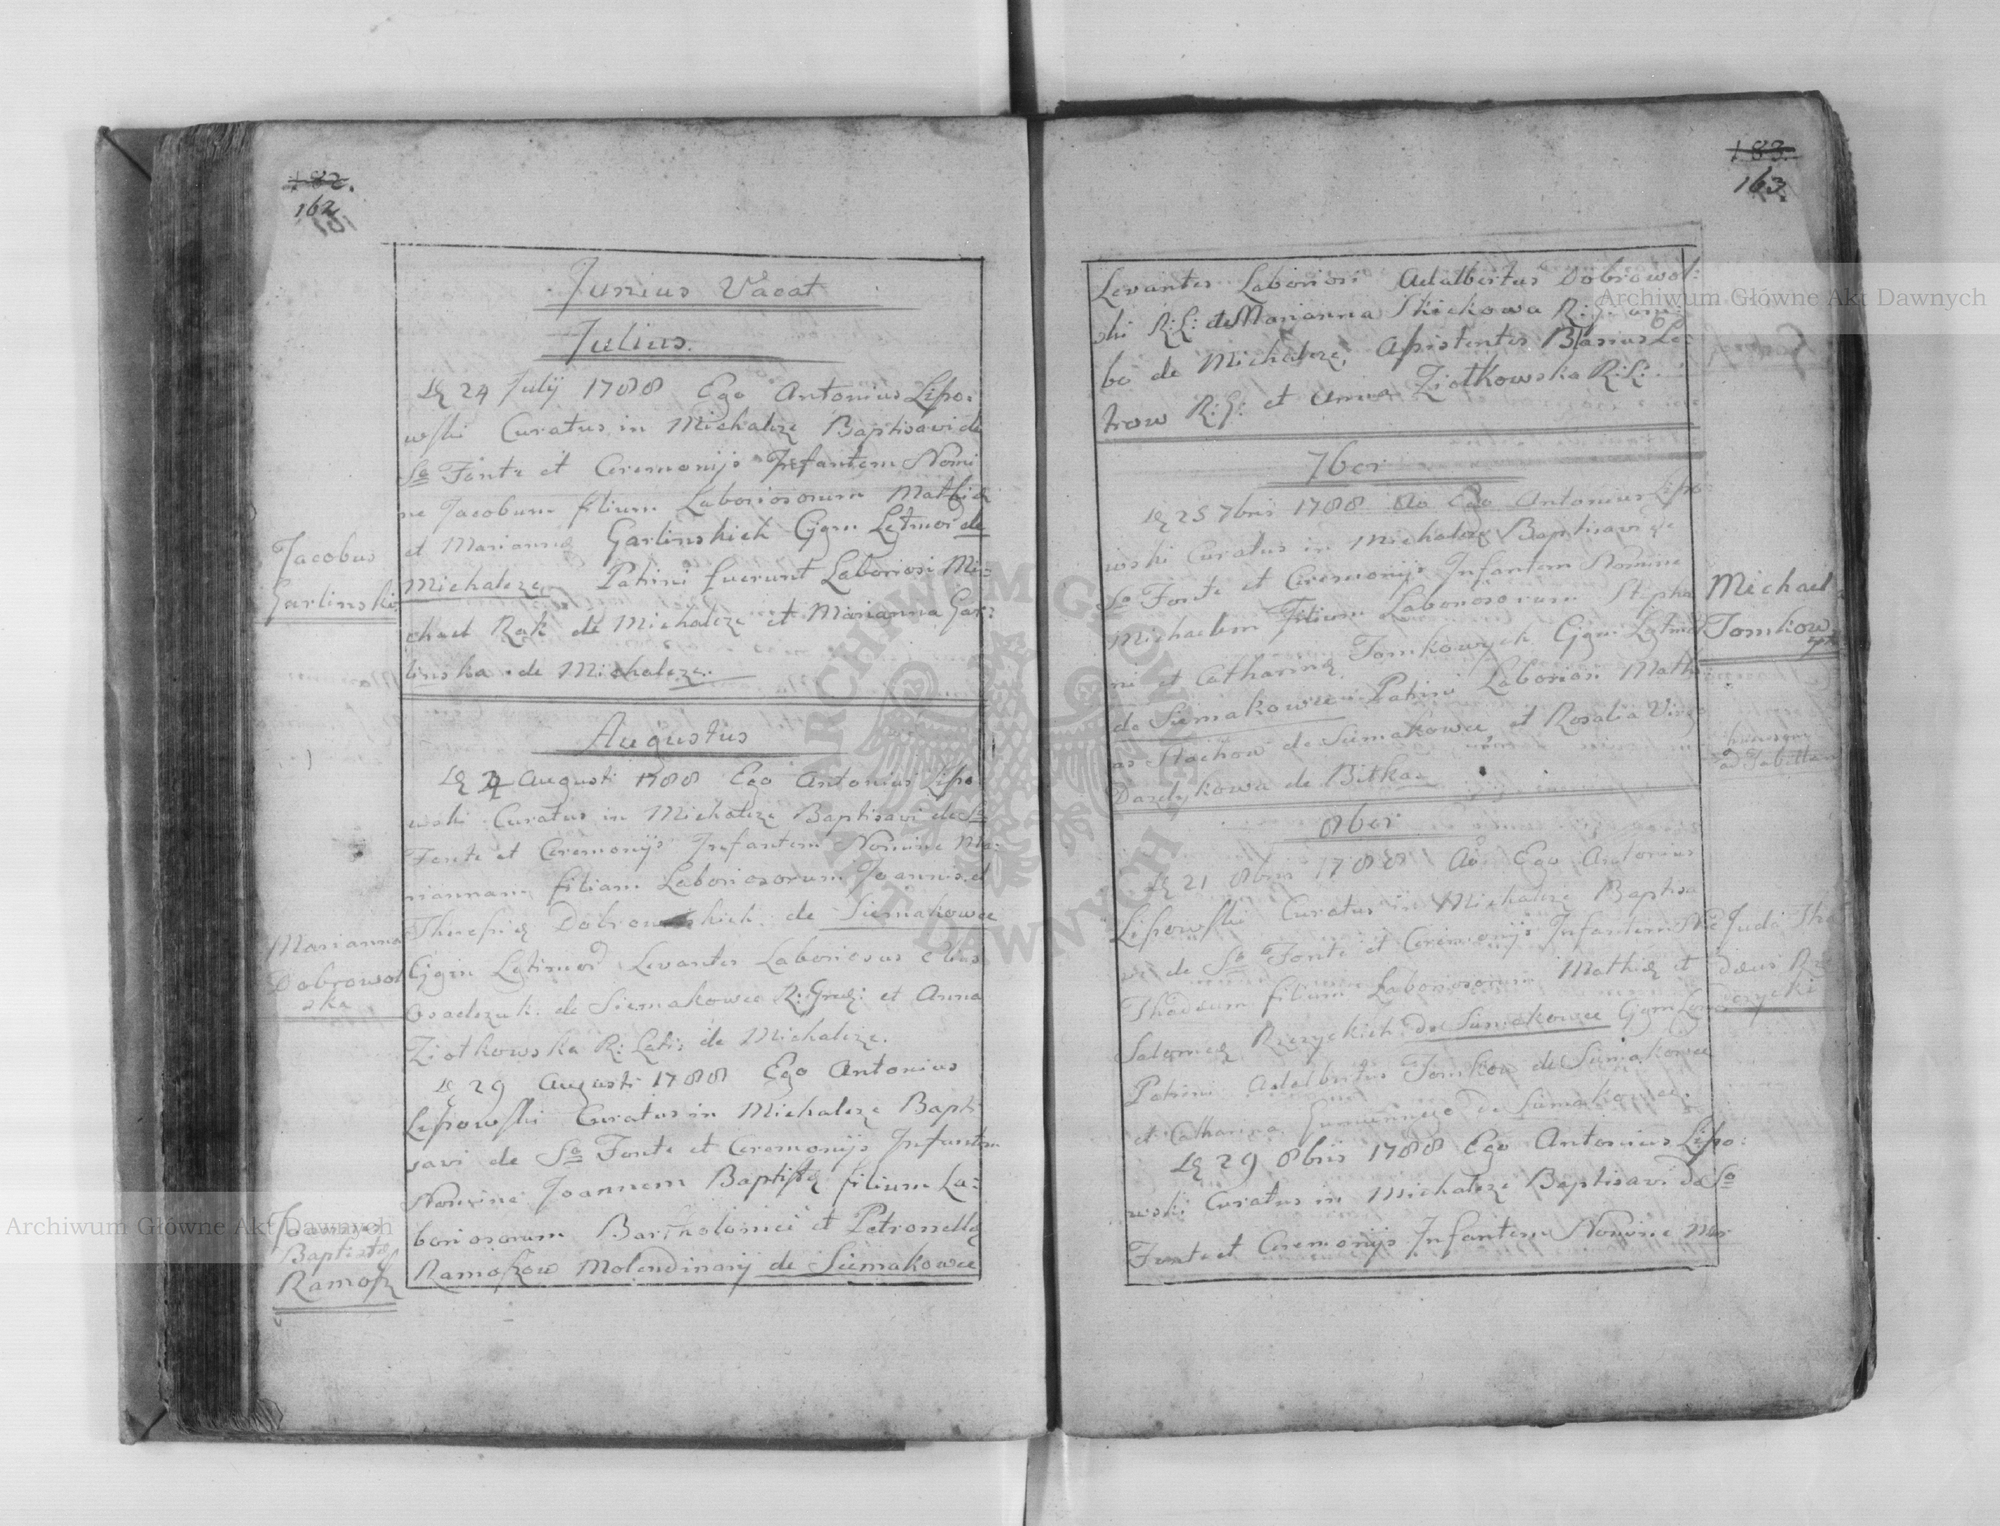 182.
162
Junius Vacat
Julius.
Dę 24 Julij 1788 Ego Antonius Lipo:
wski Curatus in Michalcze Baptisavi de
So Fonte et Ceremonijs Infantem Nomi
ne Jacobum filium Laboriosorum Mathiæ
et Mariannę Garlinskich Cjgm Lętmor de
Michalcze Patrini fuerunt Laboriosi Mi:
chael Rak de Michalcze et Marianna Gar:
linska de Michalcze.
Jacobus
Garlinski
Augustus
Dę 4 Augusti 1788 Ego Antonius Lipo
wski Curatus in Michalcze Baptisavi de So
Fonte et Ceremonijs Infantem Nomine Ma:
riannam filiam Laboriosorum Joannis et
Theresię Dobrowolskich de Siemakowce
Cjgm Lętimor Levantes Laboriosus
Osadczuk de Siemakowce R: Gręc: et Anna
Ziolkowska R: Latis de Michalcze.
Marianna
Dobrowol
ska
Dę 29 Augusti 1788 Ego Antonius
Lipowski Curatus in Michalcze Bapti
savi de So Fonte et Ceremonijs Infantem
Nomine Joannem Baptistę filium La:
boriosorum Bartholomei et Petronellę
Ramoszow Molendinarij de Siemakowce
Joannes
Baptista
Ramosz
183.
163
Levantes Laboriosi Adalbertus Dobrowol:
ski R: L: et Marianna R: G: am
bo de Michalcze, Assistentes Blasius Pe:
trow R: G: et Anna Ziolkowska R: L:
7ber
Dę 25 7bris 1788 Ao Ego Antonius Lipo
wski Curatus in Michalcze Baptisavi de
So Fonte et Ceremonijs Infantem Nomine
Michaelem Filium Laboriosorum Stepha
ni et Catharinę Tomkowych Cjgm Lętmor
de Siemakowce Patrini Laboriosi Math
as Stachow de Siemakowce et Rosalia Virgo
kowa de Bitka
Michael
Tomkow
8ber
Dę 21 8bris 1788 Ao Ego Antonius
Lipowski Curatus in Michalcze Baptisa
vi de So Fonte et Ceremonijs Infantem Nne Juda
Thadeum filium Laboriosorum Mathię et
Salomeę Rzezyckich de Siemakowce Cjgm
Patrini Adalbertus Tomkow de Siemakowce
et Catharina de Siemakowce.
Juda Tha
deus Rze
czycki
Dę 29 8bris 1788 Ego Antonius Lipo:
wski Curatus in Michalcze Baptisavi de So
Fonte et Ceremonijs Infantem Nomine Mar
Archiwum Główne Akt Dawnych
Archiwum Główne Akt Dawnych
ARCHIWUM GŁÓWNE AKT DAWNYCH